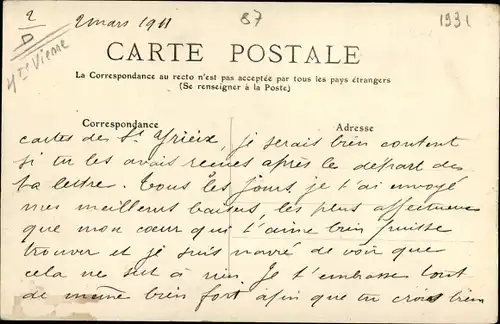 2
D
Hte Vienne
2 mars 1911
87
1931
CARTE POSTALE
La Correspondance au recto n'est pas acceptée par tous les pays étrangers
(Se renseigner à la Poste)
Correspondance
Adresse
cartes de St Yrieix, je serais bien content
si tu les avais reçues après le départ de
ta lettre. Tous les jours, je t'ai envoyé
mes meilleurs baisers, les plus affectueux
que mon cœur qui t'aime bien puisse
trouver et je suis navré de voir que
cela ne sert à rien. Je t'embrasse tout
de même bien fort afin que tu crois bien